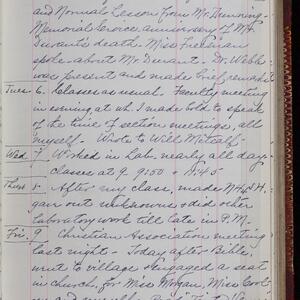 and Norma's Lesson from Mr. Denning.
Memorial Service anniversary of Mr.
Durant's death. Miss Freeman
spoke about Mr. Durant. Dr. Webb
was present and made brief remarks
Tues. 6. Classes as usual. Faculty meeting
in evening at wh. I made bold to speak
of the time of section meetings, all
myself. Wrote to Will Metcalf.
Wed. 7 Worked in Lab. nearly all day.
classes at 9 9.50 & 11.45
Thurs 8. After my class, made
gave out unknowns & did other
laboratory work till late in P.M.
Fri. 9 Christian Association meeting
last night. Today after Bible,
went to village & engaged a seat
in church, for Miss Morgan, Miss